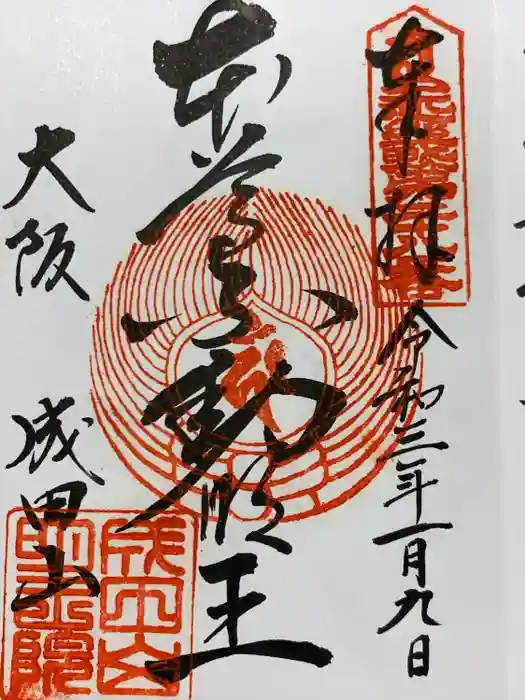 奉拝
令和三年一月九日
本尊不動明王
大阪
成田山
成田山
明王院